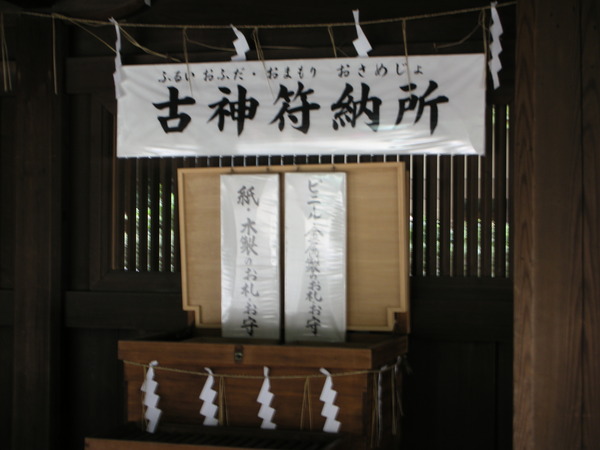 ふるい おふだ・おまもり おさめじょ
古神符納所
ビニール・金属製のお札お守
紙・木製のお札お守